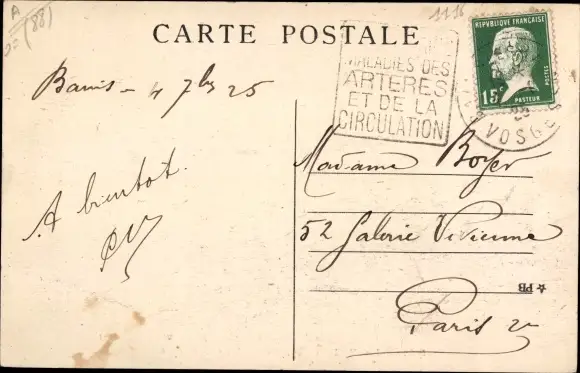 A
(88)
11-16
CARTE POSTALE
MALADIES DES
ARTERES
ET DE LA
CIRCULATION
REPUBLIQUE FRANÇAISE
POSTES
15c
PASTEUR
VOSGES
4 7bre 25
A bientot.
Madame Boyer
52 Galerie Vivienne
☆ PB
Paris